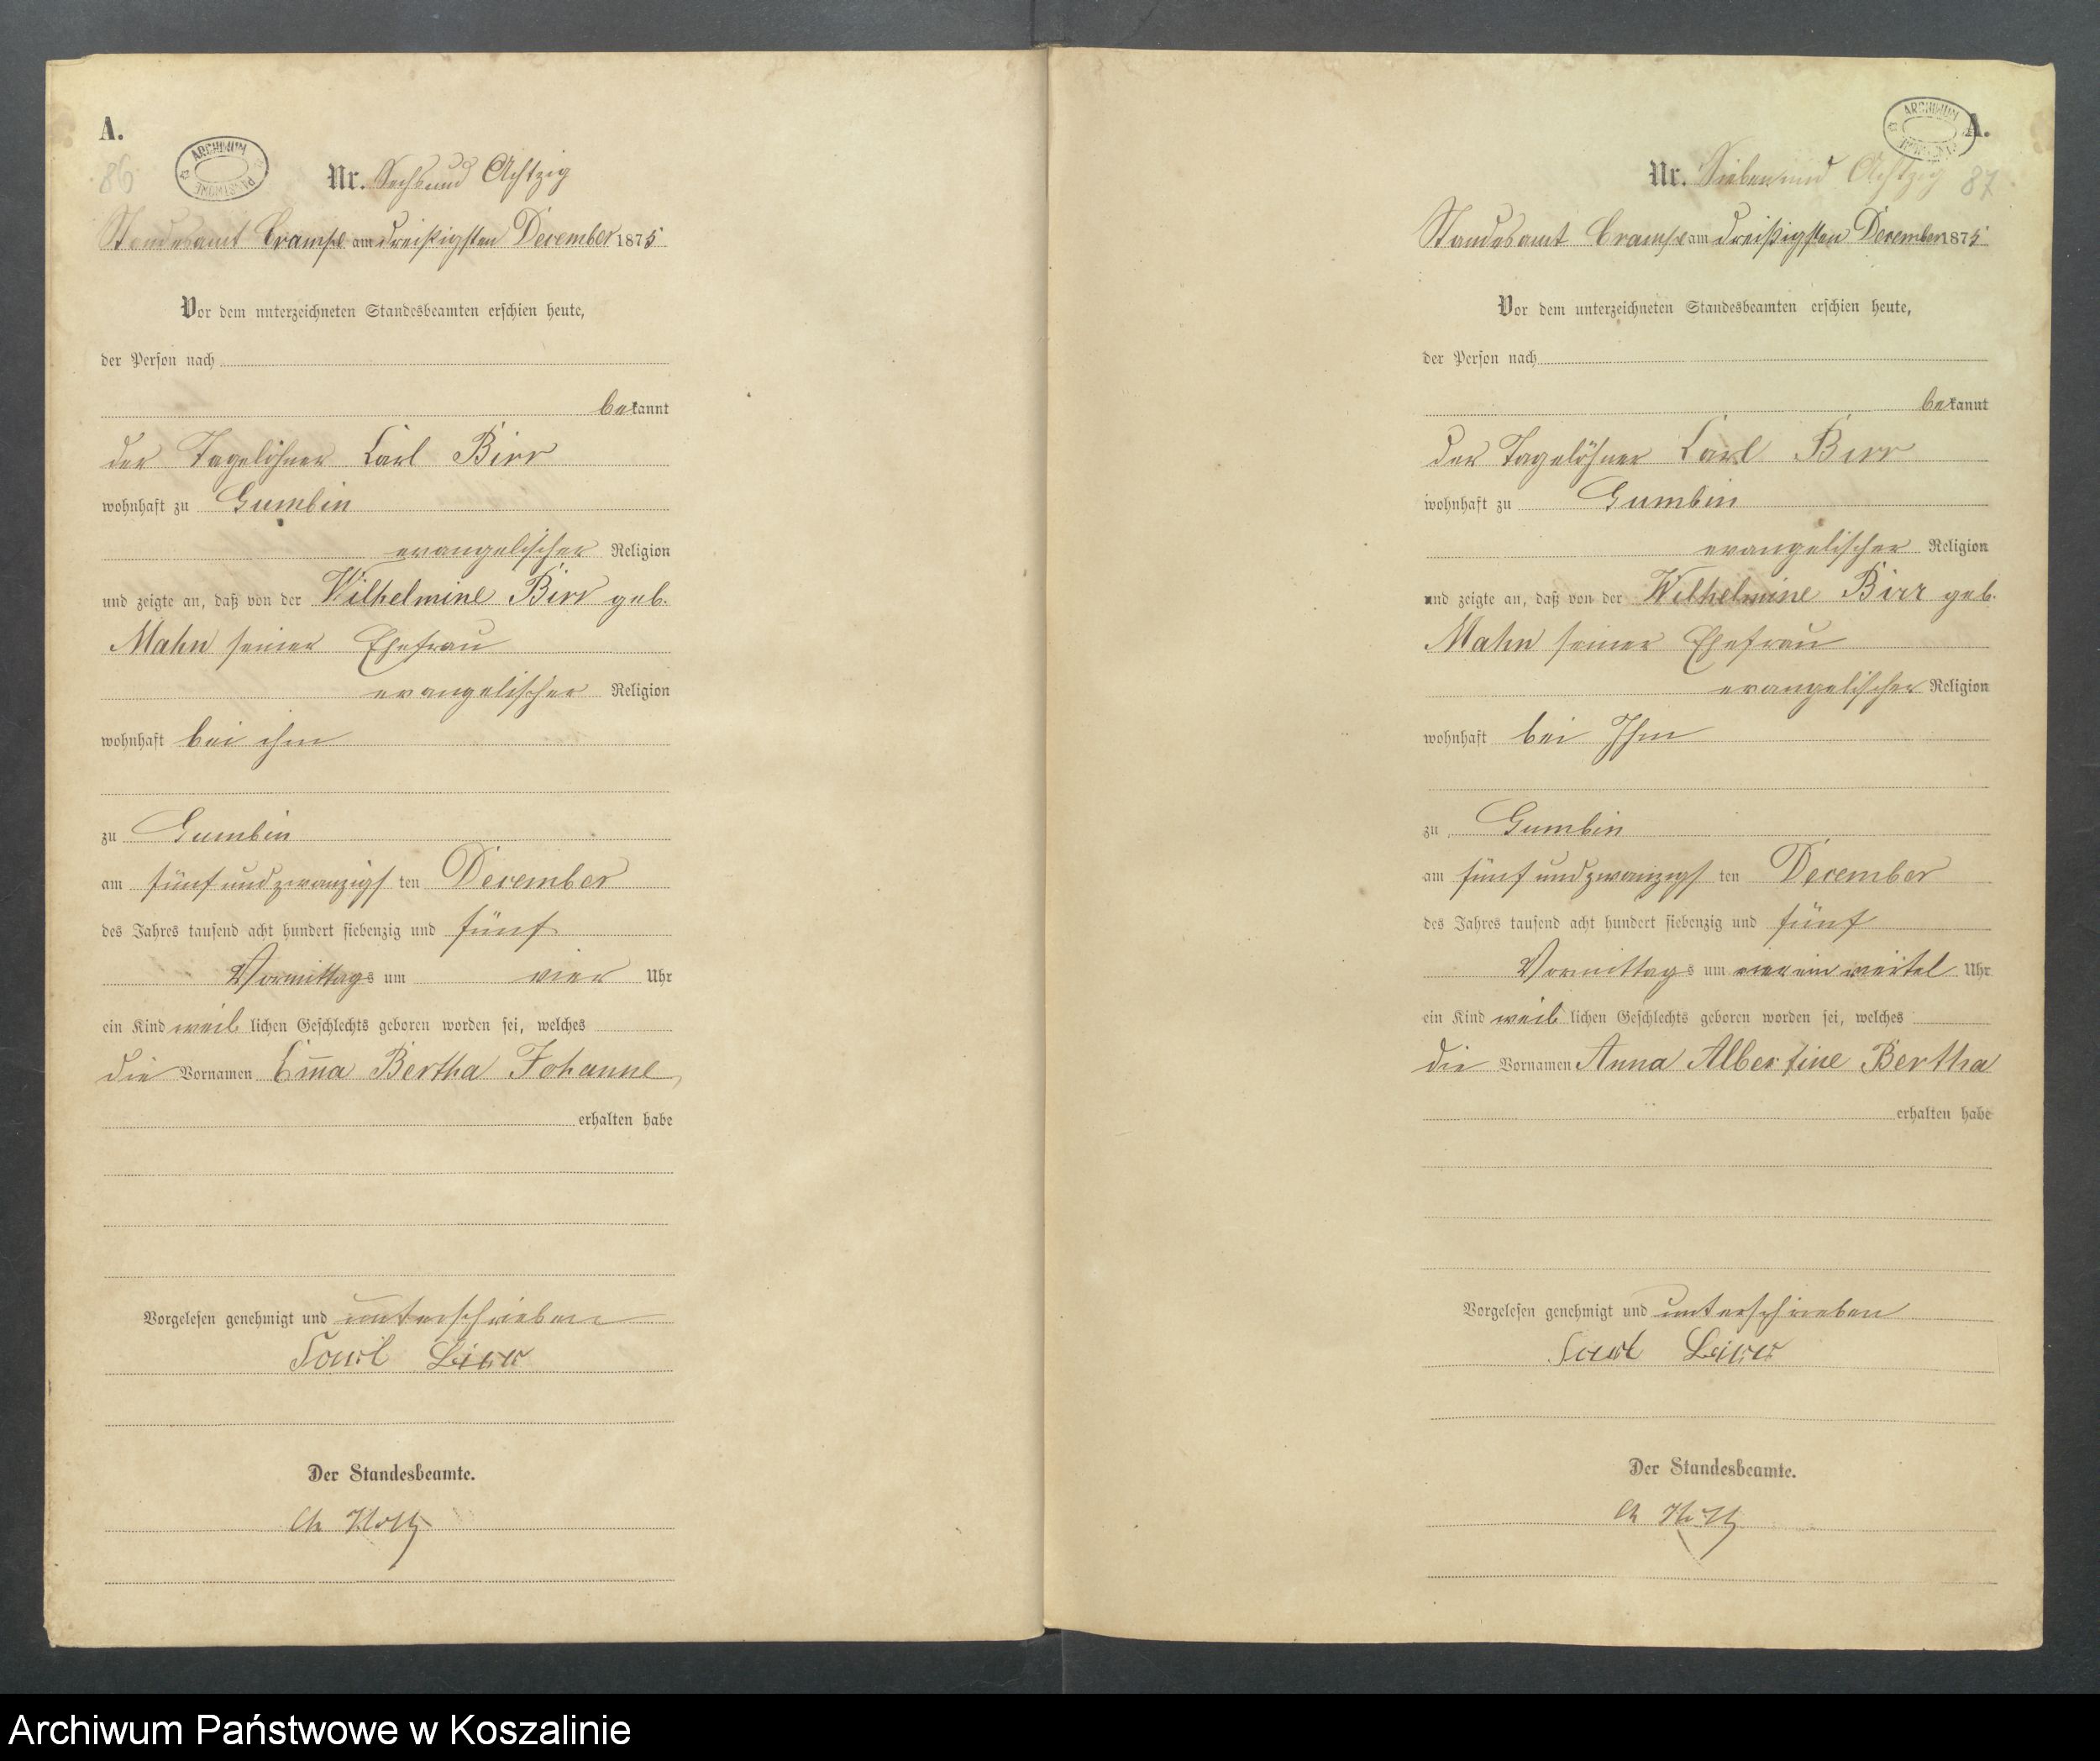 A.
86
ARCHIWUM PAŃSTWOWE
Nr. Sechsund Achtzig
Standesamt Crampe am dreißigsten December 1875
Vor dem unterzeichneten Standesbeamten erschien heute,
der Person nach
bekannt
der Tagelöhner Carl Birr
wohnhaft zu Gumbin
evangelischer Religion
und zeigte an, daß von der Wilhelmine Birr geb.
Mahn seiner Ehefrau
evangelischer Religion
wohnhaft bei ihm
zu Gumbin
am fünfundzwanzigsten December
des Jahres tausend acht hundert siebenzig und fünf
Vormittags um vier Uhr
ein Kind weiblichen Geschlechts geboren worden sei, welches
die Vornamen Em̄a Bertha Johanne
erhalten habe
Vorgelesen genehmigt und unterschrieben
Carl Birr
Der Standesbeamte.
A.
ARCHIWUM PAŃSTWOWE
Nr. Siebenund Achtzig 87
Standesamt Crampe am dreißigsten December 1875
Vor dem unterzeichneten Standesbeamten erschien heute,
der Person nach
bekannt
der Tagelöhner Carl Birr
wohnhaft zu Gumbin
evangelischer Religion
und zeigte an, daß von der Wilhelmine Birr geb.
Mahn seiner Ehefrau
evangelischer Religion
wohnhaft bei Ihm
zu Gumbin
am fünfundzwanzigsten December
des Jahres tausend acht hundert siebenzig und fünf
Vormittags um vier ein viertel Uhr
ein Kind weiblichen Geschlechts geboren worden sei, welches
die Vornamen Anna Albertine Bertha
erhalten habe
Vorgelesen genehmigt und unterschrieben
Carl Birr
Der Standesbeamte.
Archiwum Państwowe w Koszalinie